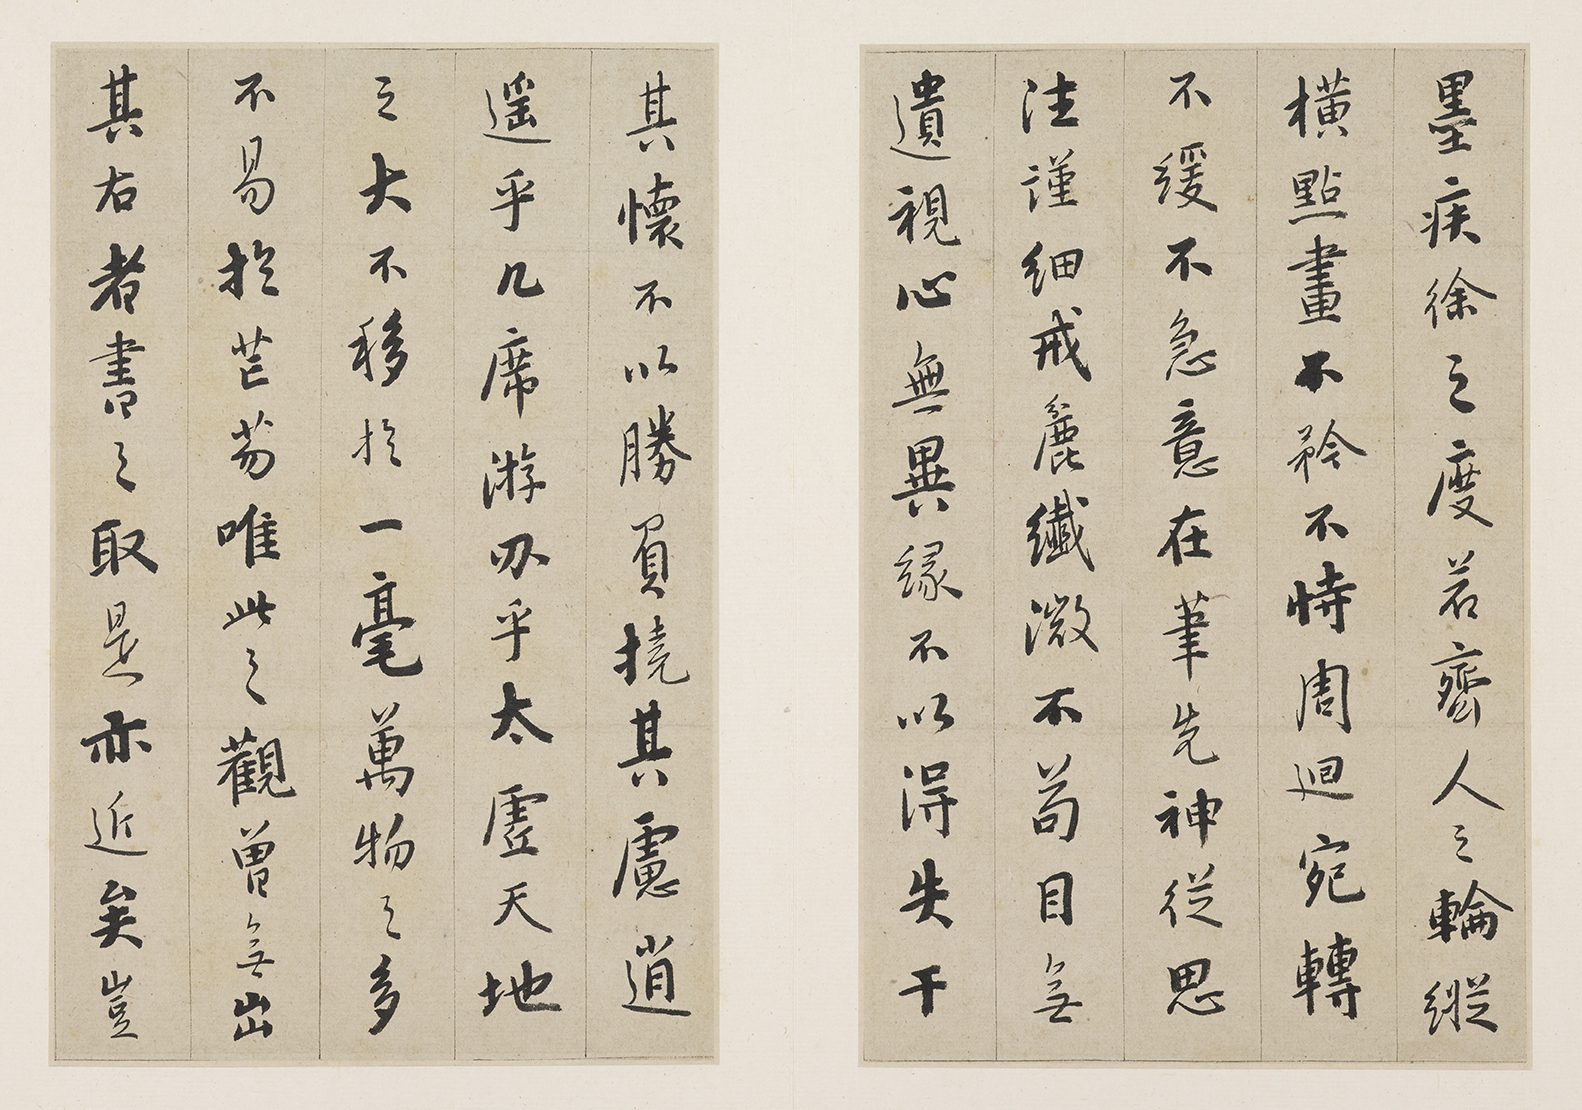 墨疾徐之度若齊人之輪縱
橫點畫不矜不恃周迴宛轉
不緩不急意在筆先神從思
注謹細戒麁纖微不苟目無
遺視心無異緣不以得失干
其懷不以勝負撓其慮逍
遥乎几席游刃乎太虛天地
之大不移於一毫萬物之多
不易於芒芴唯此之觀曾無出
其右者書之取是亦近矣豈